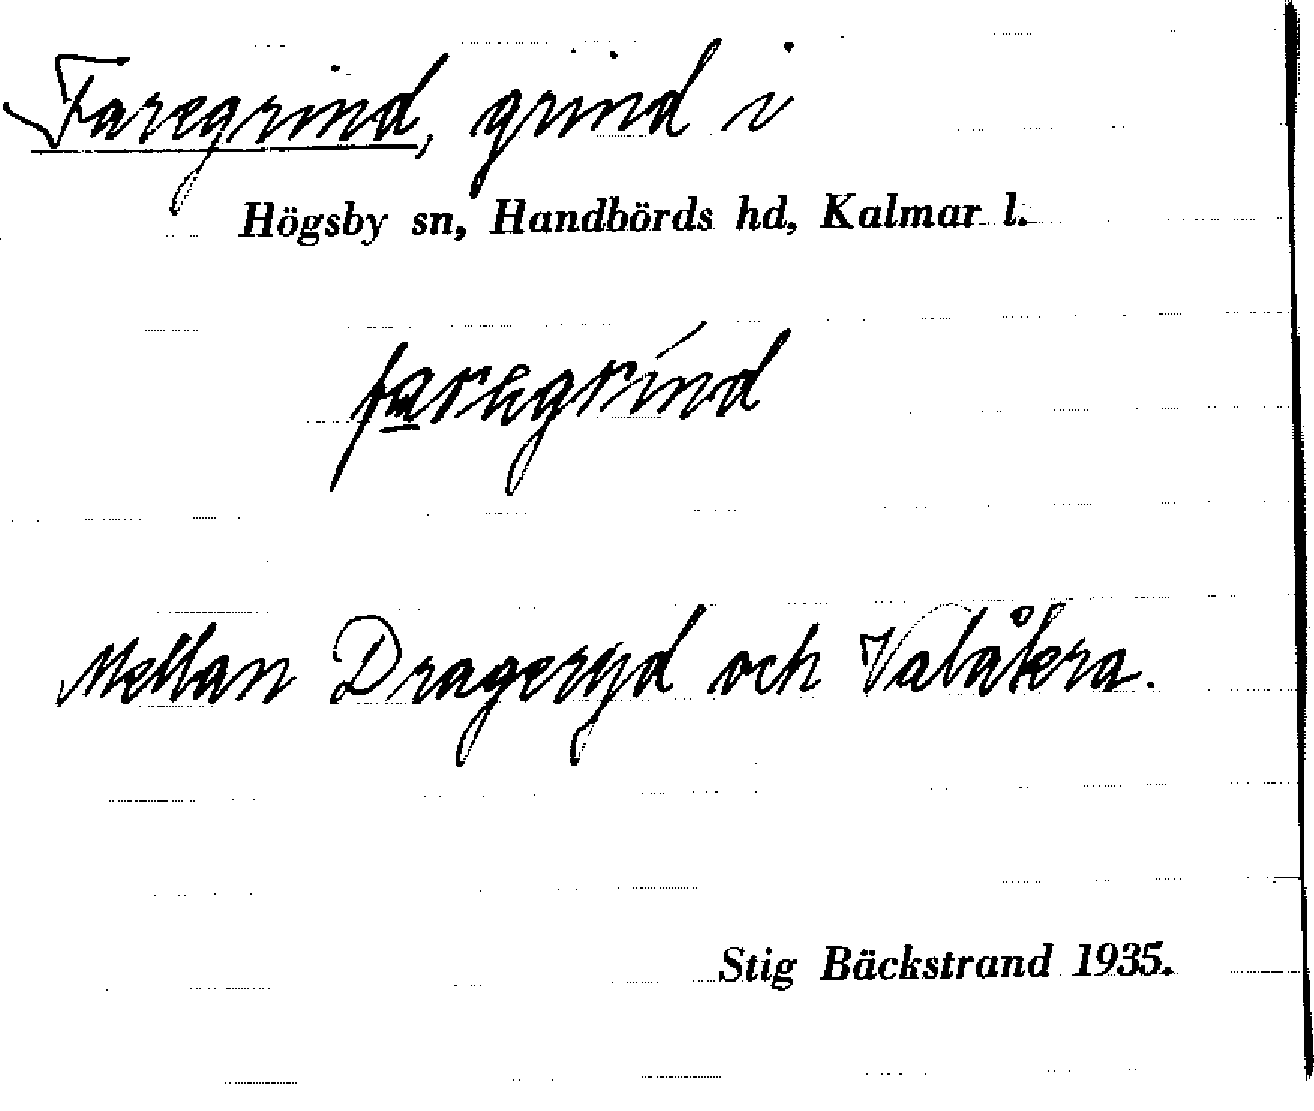 Faregrind, grind i
Högsby sn, Handbörds hd, Kalmar l.
Mellan Drageryd och Valåkra.
Stig Bäckstrand 1935.